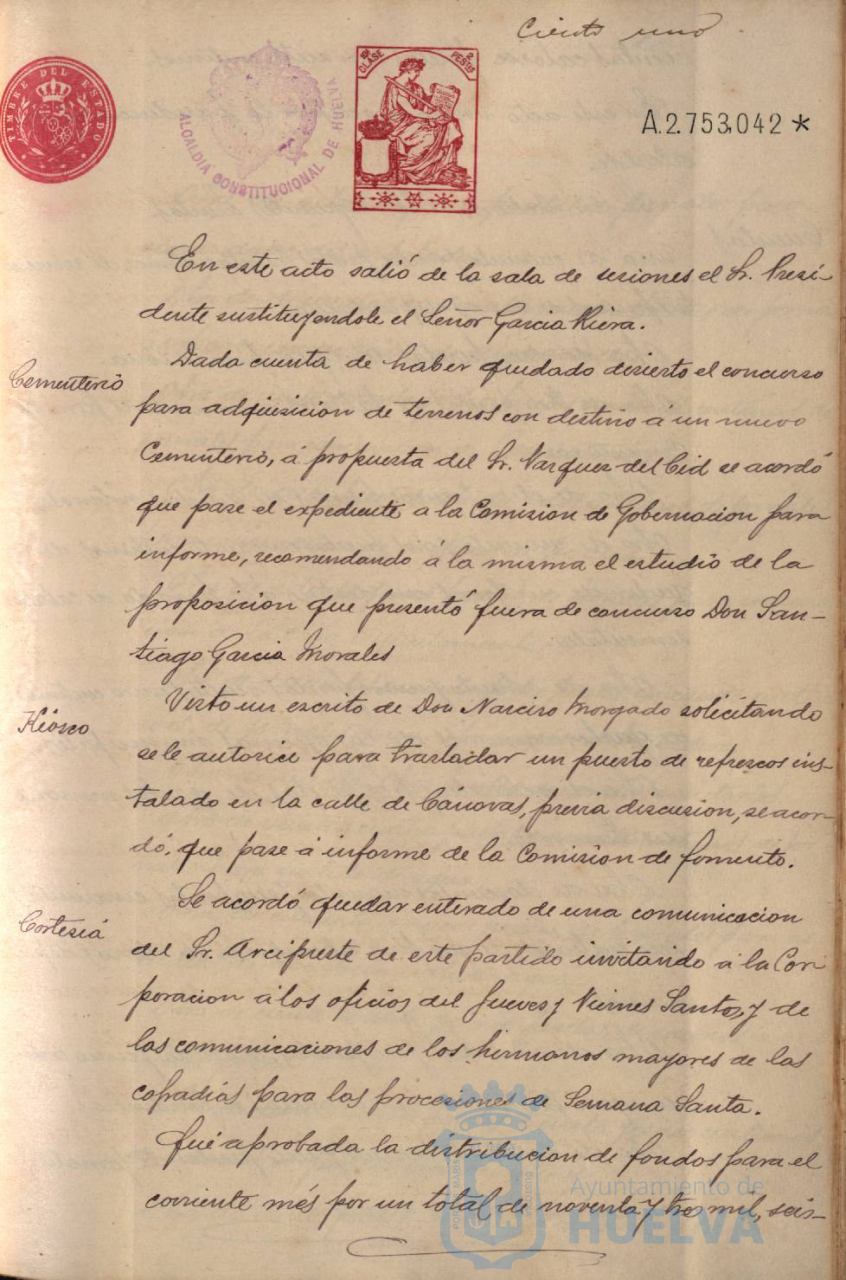 Ciento uno
TIMBRE DEL ESTADO
ALCALDIA CONSTITUCIONAL DE HUELVA
10ª CLASE 2 PESETAS
A.2.753,042 *
En este acto salió de la sala de sesiones el Sr. Presi-
dente sustituyendole el Señor Garcia Riera.
Cementerio
Dada cuenta de haber quedado desierto el concurso
para adquisicion de terrenos con destino á un nuevo
Cementerio, á propuesta del Sr. Vazquez del Cid se acordó
que pase el expediente a la Comision de Gobernacion para
informe, recomendando á la misma el estudio de la
proposicion que presentó fuera de concurso Don San-
tiago Garcia Morales
Kiosco
Visto un escrito de Don Narciso Morgado solicitando
se le autorice para trasladar un puesto de refrescos ins-
talado en la calle de Cánovas, previa discusion, se acor-
dó, que pase á informe de la Comision de fomento.
Cortesiá
Se acordó quedar enterado de una comunicacion
del Sr. Arcipreste de este partido invitando á la Cor-
poracion á los oficios del Jueves y Viernes Santos, y de
las comunicaciones de los hermanos mayores de las
cofradiás para las procesiones de Semana Santa.
Fué aprobada la distribucion de fondos para el
corriente més por un total de noventa y tres mil, seis-
Ayuntamiento de
HUELVA